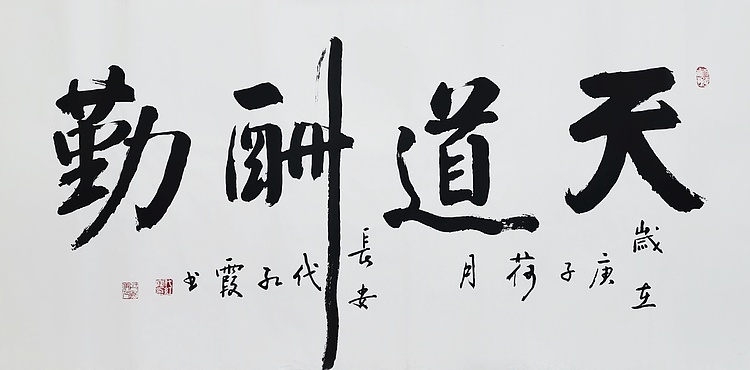 天道酬勤
歲在庚子荷月
長安代紅霞书